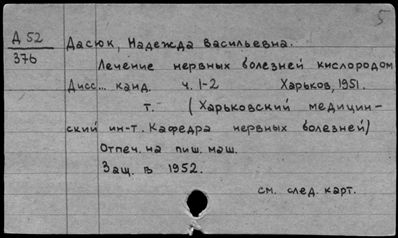 5
Д 52
376
Дасюк, Надежда Васильевна.
Лечение нервных болезней кислородом
Дисс... канд. ч. 1-2 Харьков, 1951.
т. (Харьковский медицин-
ский ин-т. Кафедра нервных болезней)
Отпеч. на пиш. маш.
Защ. в 1952.
см. след. карт.